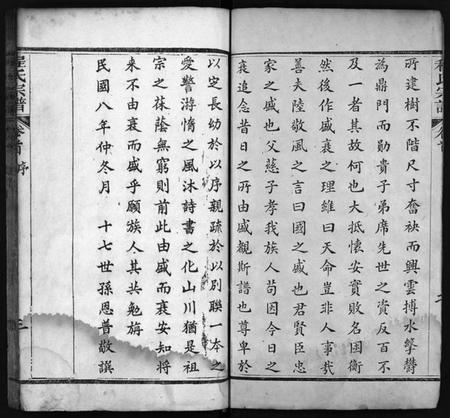 所建樹不階尺寸奮袂而興雲搏水擊欝
為鼎門而勛貴子弟席先世之資反百不
及一者其故何也大抵懷安實敗名困衡
然後作盛衰之理維曰天命豈非人事哉
善夫陸敬風之言曰國之盛也君賢臣忠
家之盛也父慈子孝我族人苟因今日之
衰追念昔日之所由盛觀斯譜也尊卑於
以定長幼於以序親疏於以別聯一本之
愛警游惰之風沐詩書之化山川猶是祖
宗之蔭無窮則前此由盛而衰安知將
來不由衰而盛乎願族人其共勉旃
民國八年仲冬月 十七世孫恩普敬譔
程氏宗譜
卷首 序
三